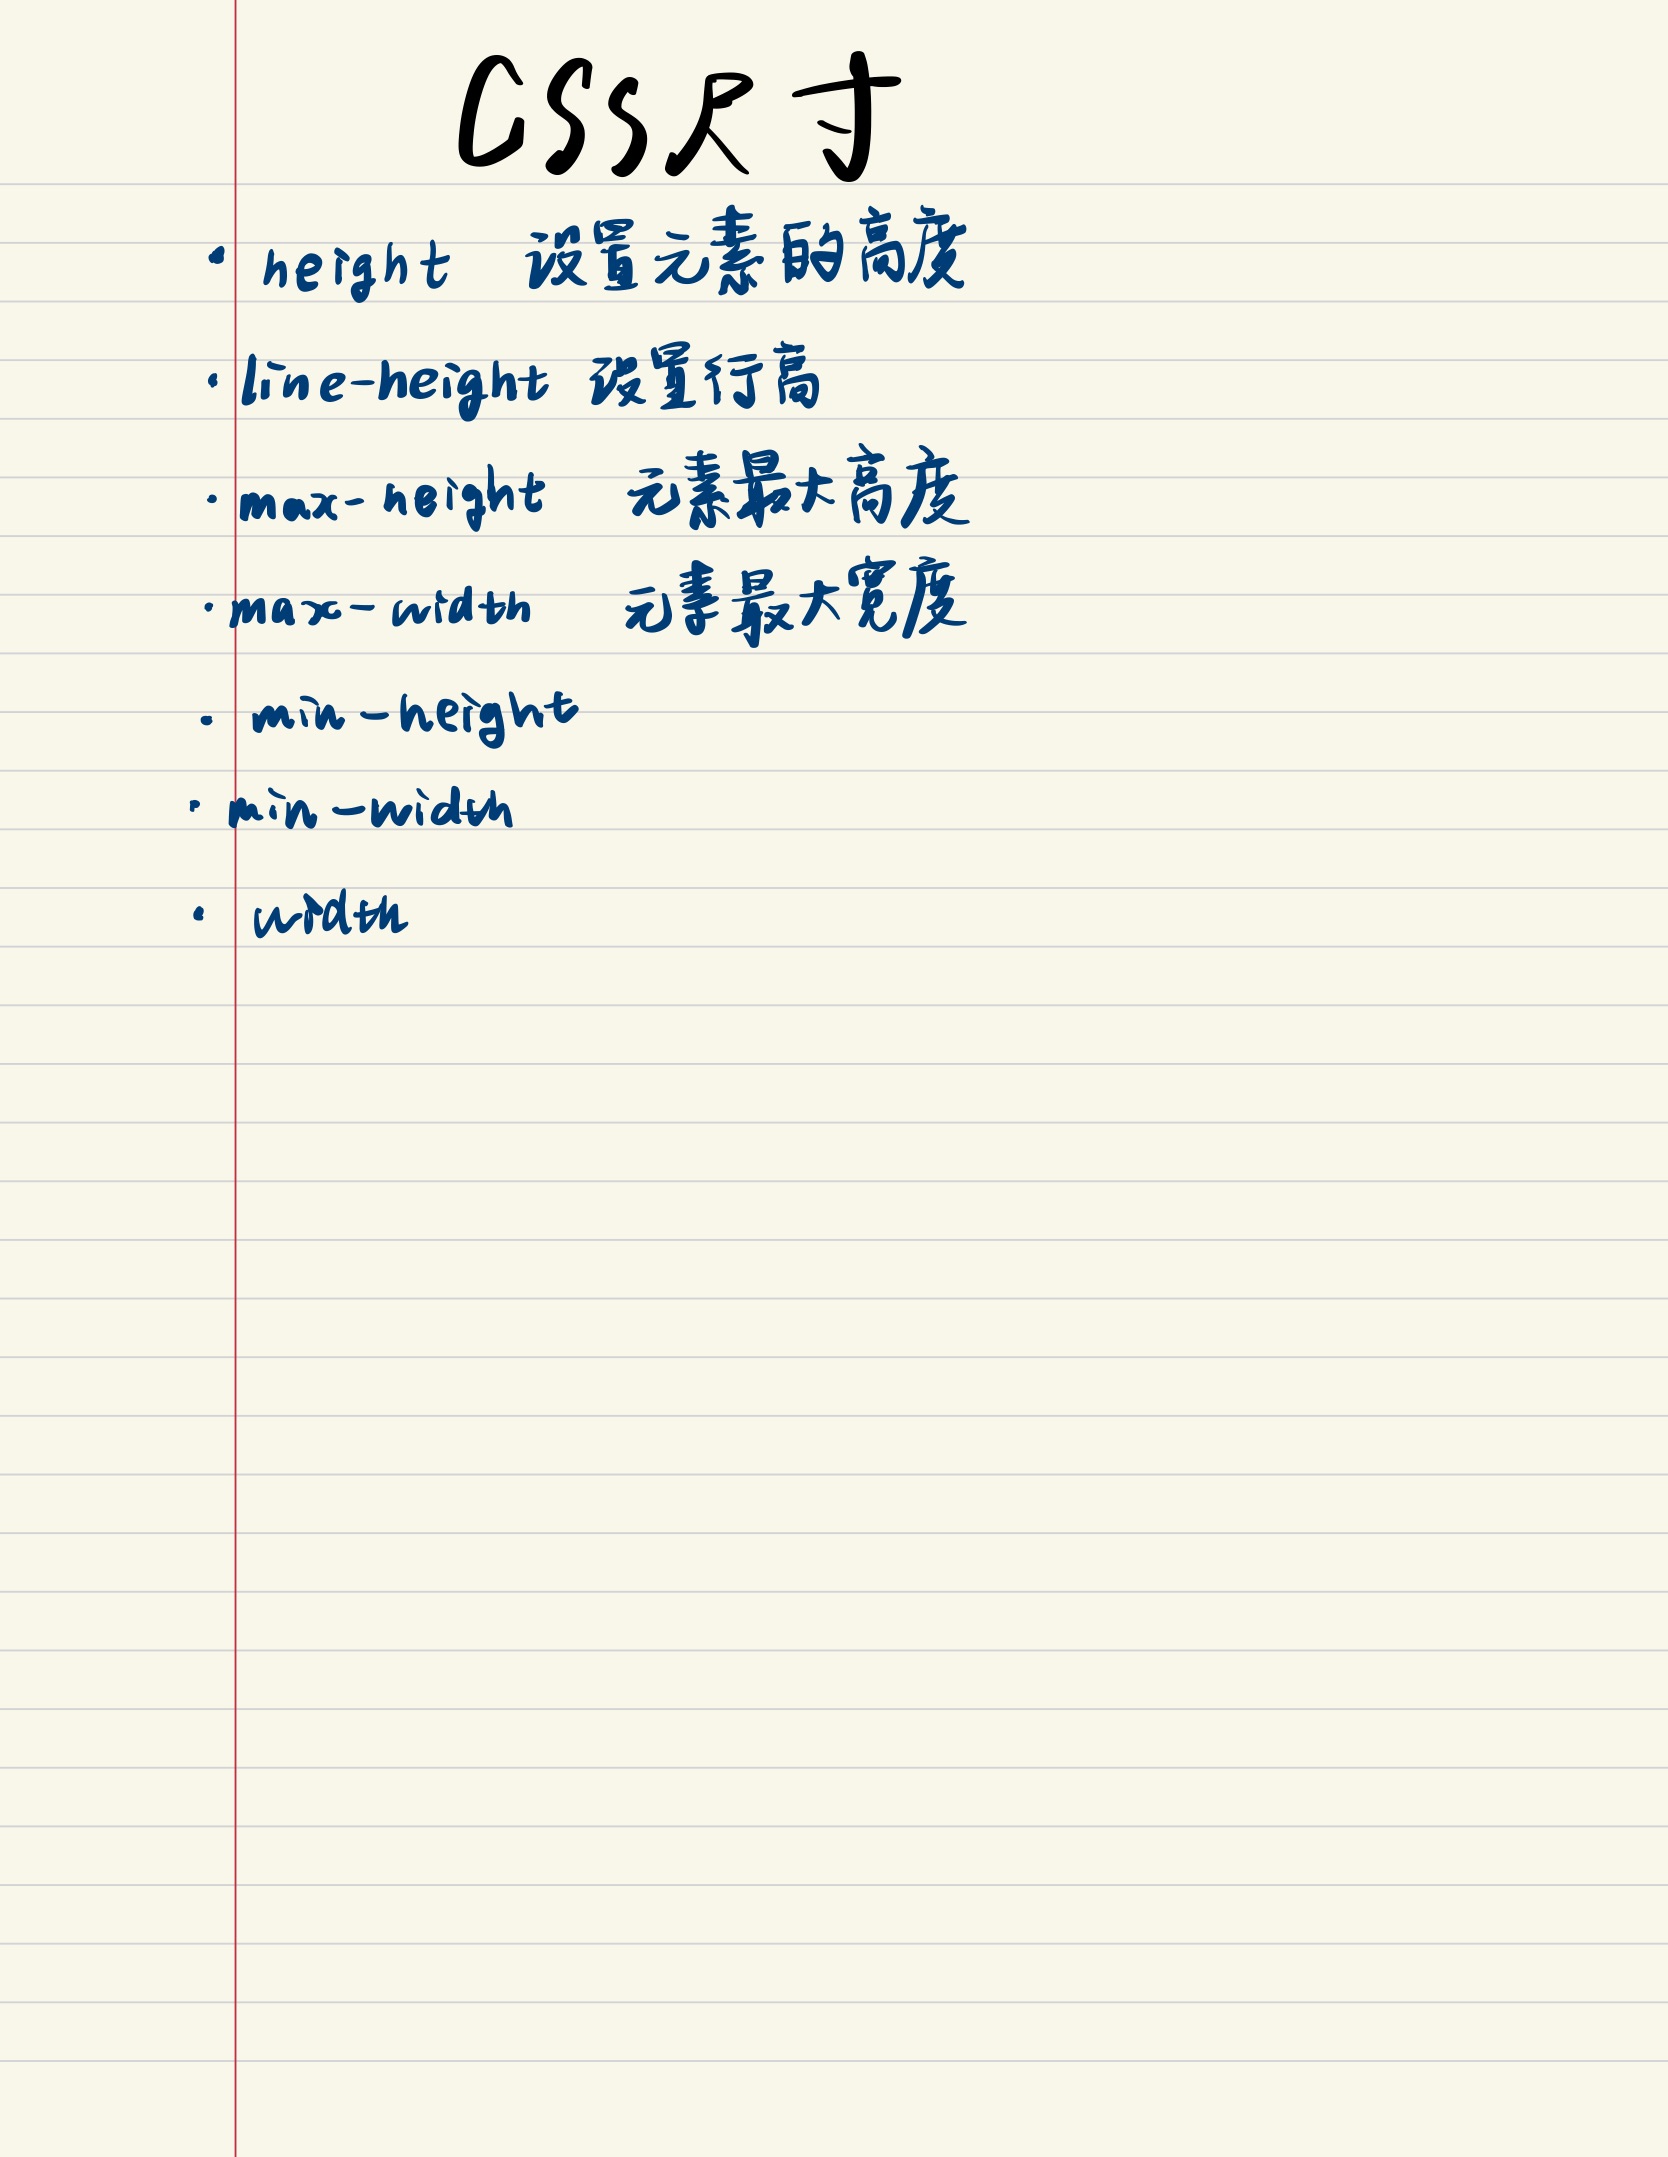 CSS尺寸
· height 设置元素的高度
· line-height 设置行高
· max-height 元素最大高度
· max-width 元素最大宽度
· min-height
· min-width
· width